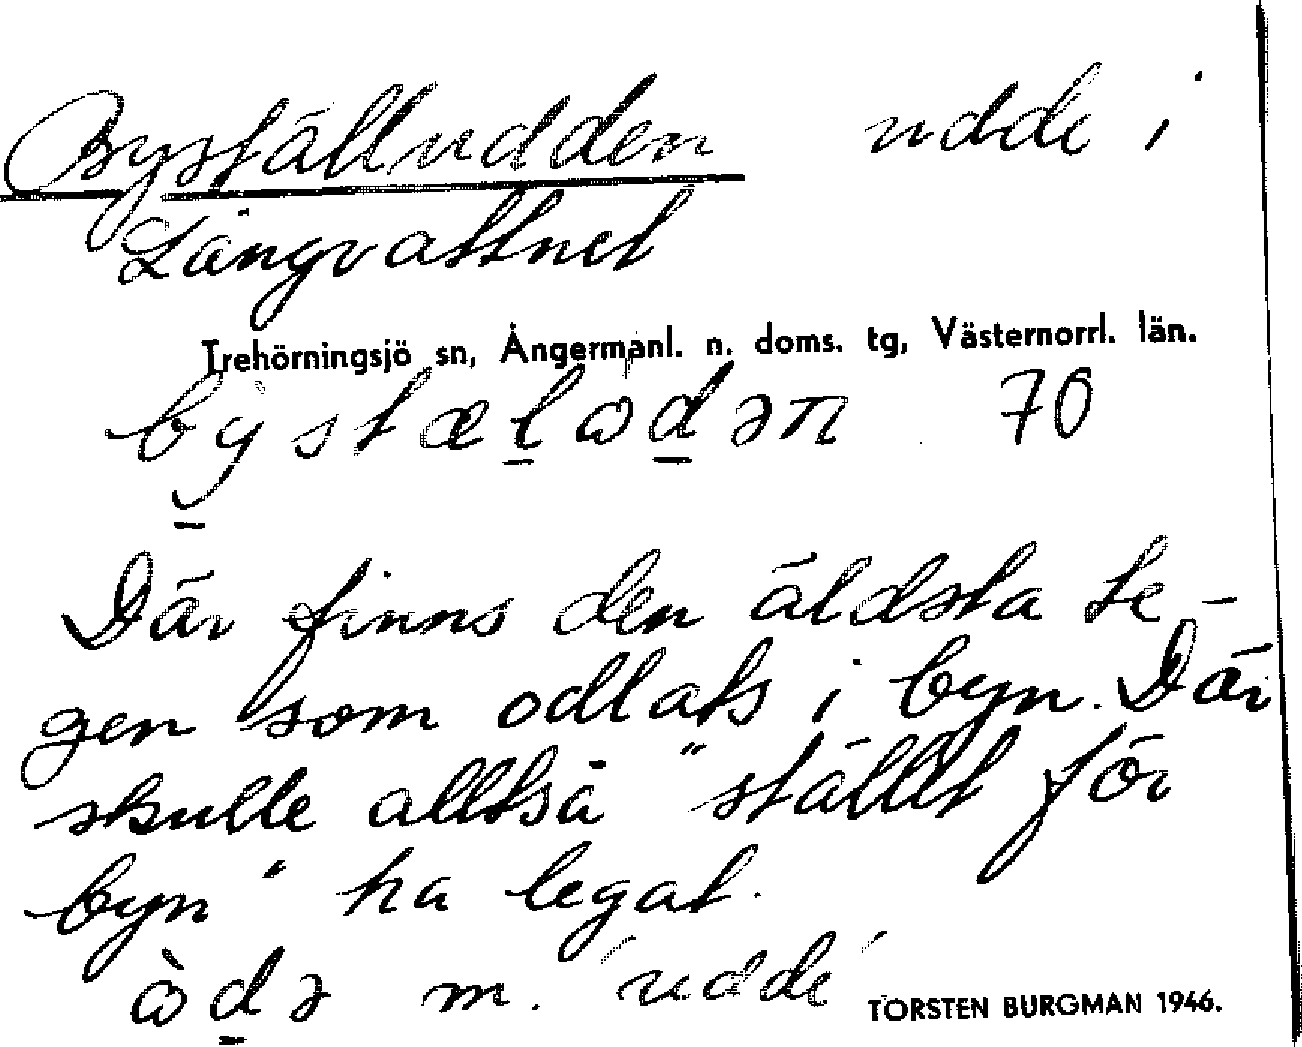 Byställudden udde i
Långvattnet
Trehörningsjö sn, Ångermanl. n. doms. tg, Västernorrl. län.
bỳ̱stæḻωḏən 70
Där finns den äldsta te-
gen som odlats i byn. Där
skulle alltså "stället för
byn" ha legat.
ὼḏə m. 'udde'
TORSTEN BURGMAN 1946.